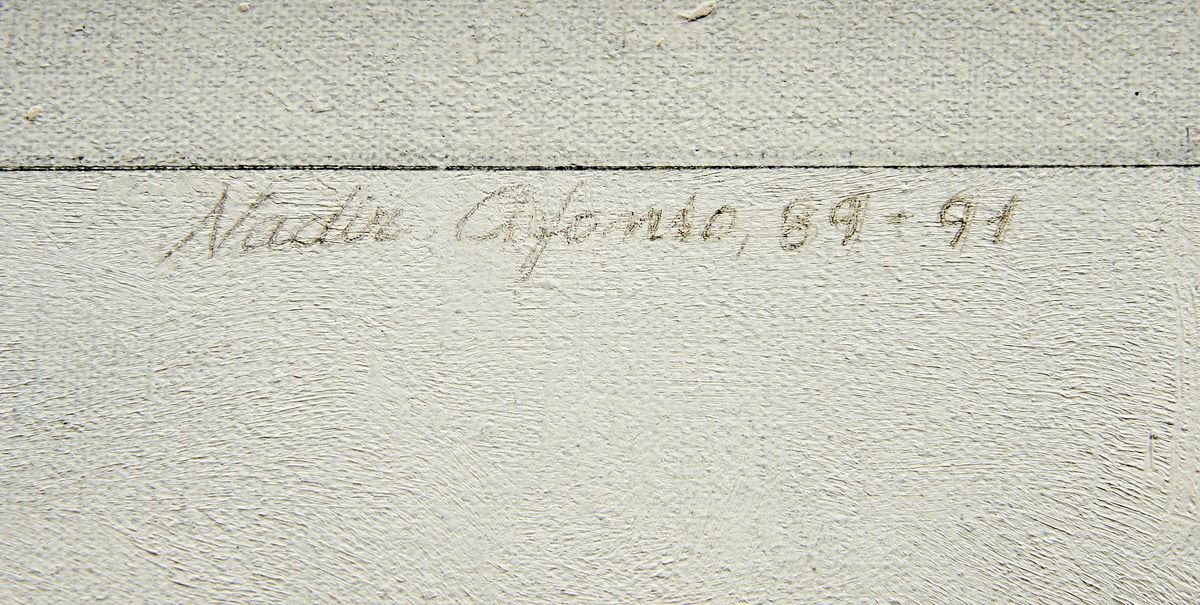 Nadir Afonso, 89-91